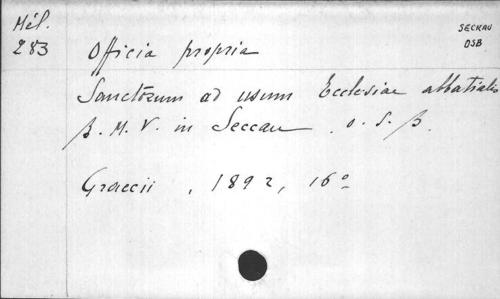 Mél.
283
SECKAU
OSB
Officia propria
Sanctorum ad usum Ecclesiae abbatialis
B. M. V. in Seccau . O. S. B.
Graecii , 1892, 16°